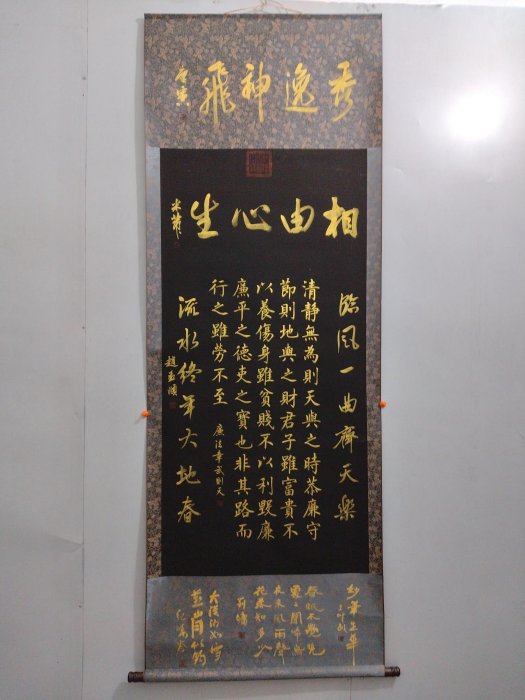 秀逸神飛
唐寅
相由心生
米芾
臨風一曲齊天樂
清靜無為則天與之時恭廉守
節則地與之財君子雖富貴不
以養傷身雖貧賤不以利毀廉
廉平之德吏之寶也非其路而
行之雖勞不至
武則天
流水終年大地春
趙孟頫
妙筆生華
春眠不覺曉
處々聞啼鳥
夜來風雨聲
花落知多少
大漠沙如雪
燕山月似鉤